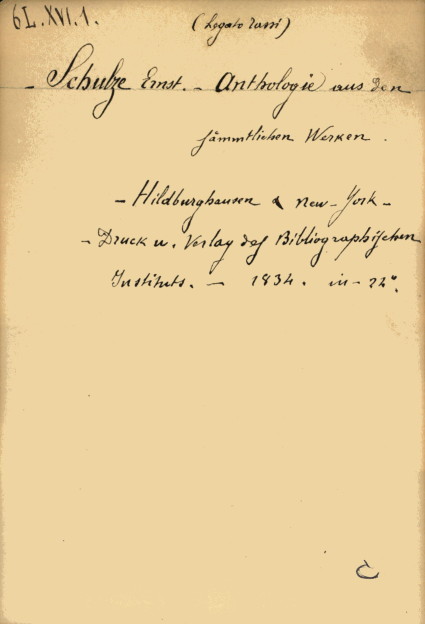 6L.XVI.1.
(Legato Tassi)
Schulze Ernst. – Anthologie aus den
sämmtlichen Werken.
– Hildburghausen & New-York –
– Druck u. Verlag des Bibliographischen
Instituts. – 1834. in-24°.
C